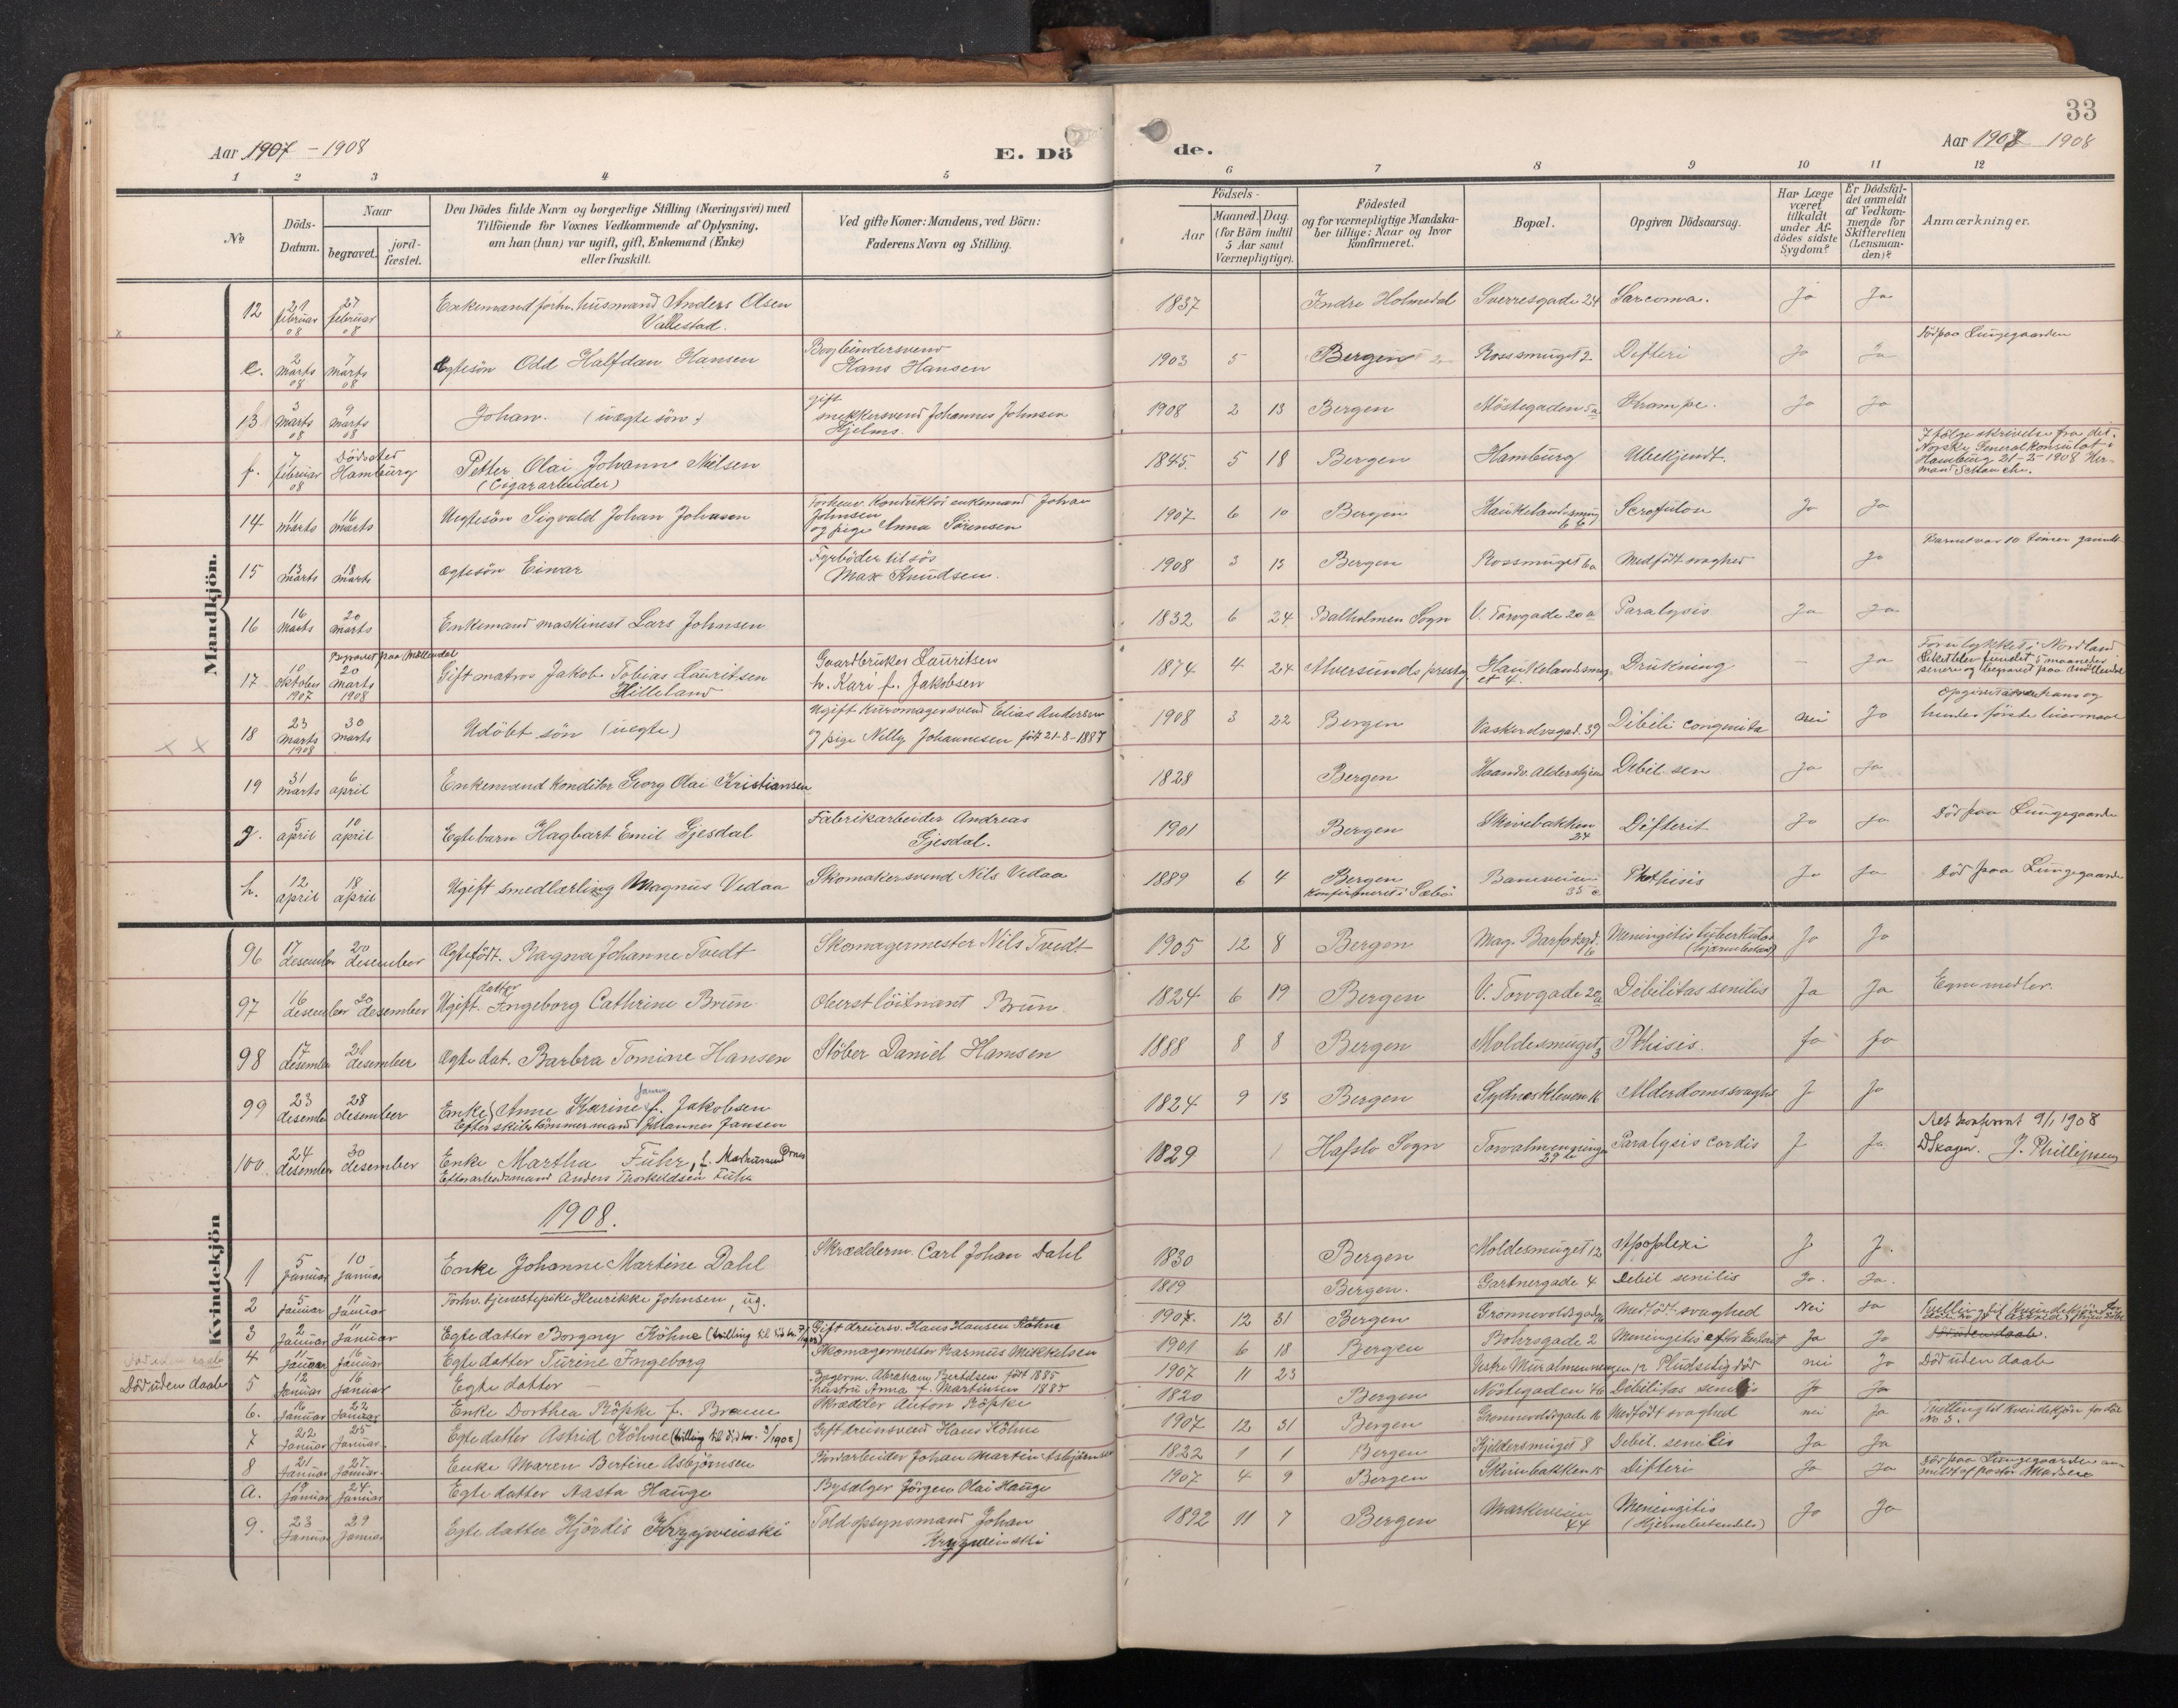 33
Aar 1907 - 1908
E. Dö
de.
Aar 1907 1908
1 2 3 4 5 6 7 8 9 10 11 12
№
Döds-
Datum.
Naar
begravet.
jord-
fæstet.
Den Dödes fulde Navn og borgerlige Stilling (Næringsvei) med
Tilföiende for Voxnes Vedkommende af Oplysning,
om han (hun) var ugift, gift, Enkemand (Enke)
eller fraskilt.
Ved gifte Koner: Mandens, ved Börn:
Faderens Navn og Stilling.
Födsels-
Aar
Maaned. Dag.
(for Börn indtil
5 Aar samt
Værnepligtige).
Födested
og for værnepligtige Mandska-
ber tillige: Naar og hvor
konfirmeret.
Bopæl.
Opgiven Dödsaarsag.
Har Læge
været
tilkaldt
under Af-
dödes sidste
Sygdom?
Er Dödsfal-
det anmeldt
af Vedkom-
mende for
Skifteretten
(Lensman-
den)?
Anmærkninger.
Mandkjön.
12 21 februar 08 27 februar 08 Enkemand forhv. husmand Anders Olsen Vallestad. 1837 Indre Holmedal Sverresgade 24 Sarcoma. Ja Ja
e. 2 marts 08 7 marts 08 Egtesön Odd Halfdan Hansen Bogbindersvend Hans Hansen 1903 5 Bergen Rossmuget 2 Difteri Ja Ja Död paa Lungegaarden
13 3 marts 08 9 marts 08 Johan. (uægte sön) gift snekkersvend Johannes Johnsen Hjelms. 1908 2 13 Bergen Nöstegaden 5a Krampe. Ja Ja
f. 7 februar 08 Dödsted Hamburg Petter Olai Johann Nilsen (Cigararbeider) 1845. 5 18 Bergen Hamburg Ubekjendt. Ifölge skrivelse fra det Norske Generalkonsulat i Hamburg 21-2-1908
14 11 marts 16 marts Uegtesön Sigvald Johan Johnsen Forhenv. Konduktör enkemand Johan Johnsen og pige Anna Sörensen 1907 6 10 Bergen Haukelandsmug 6b Scrofulou Ja Ja
15 13 marts 18 marts ægtesön Einar Fyrböder tilsös Max Knudsen. 1908 3 13 Bergen Rossmuget 6a Medfödt svaghed Ja Barnet var 10 timer gammelt
16 16 marts 20 marts Enkemand maskinest Lars Johnsen 1832 6 24 Balholmen Sogn V. Torvgade 20a Paralysis Ja Ja
17 10 oktober 1907 Begravet paa Möllendal 20 marts 1908 Gift matros Jakob Tobias Lauritsen Hilleland Gaardbruker Lauritsen h. Kari f. Jakobsen 1874 4 24 Alversunds prestg. Haukelandsmuget 4. Drukning - Ja Forulykket i Nordland Liket blev fundet 5 maaneder senere og begravet paa Möllendal
18 23 marts 1908 30 marts Udöbt sön (uegte) Ugift Kuromagersvend Elias Andersen og pige Nelly Johannesen föt 21-8-1887 1908 3 22 Bergen Vaskerelvsgad. 39 Debili congenita nei Ja
19 31 marts 6 april Enkemand konditor Georg Olai Kristiansen 1828 Bergen Haandv. Aldershjem Debil sen Ja Ja
g. 5 april 10 april Egtebarn Hagbart Emil Gjesdal Fabrikarbeider Andreas Gjesdal. 1901 Bergen Skivebakken 24 Difterit Ja Ja Död paa Lungegaarden
h. 12 april 18 april Ugift smedlærling Magnus Vedaa Skomakersvend Nils Vedaa 1889 6 4 Bergen Konfirmeret i Sæbö Baneveien 35c Phthisis Ja Ja Död paa Lungegaarden
Kvindekjön
96 17 desember 20 desember Ægtefödt. Ragna Johanne Tvedt Skomagermester Nils Tvedt 1905 12 8 Bergen Mag. Barfodsgd. 6 Meningitis tuberkulos (hjernebetændelse) Ja Ja
97 16 desember 20 desember Ugift. datter Ingeborg Cathrine Brun Oberstlöitnant Brun 1824 6 19 Bergen V. Torvgade 20a Debilitas senilis Ja Ja Egne midler.
98 17 desember 21 desember Ægte dat. Barbra Tomine Hansen Stöber Daniel Hansen 1888 8 8 Bergen Moldesmuget 3 Phtisis. Ja Ja
99 23 desember 28 desember Enke Anne Karine f. Jakobsen Efter skibstömmermand Johannes Jansen 1824 9 13 Bergen Sydneskleven 16 Alderdomssvaghed J Ja
100 24 desember 30 desember Enke Martha Führ, f. Ornes Efter arbeidsmand Anders Thorkildsen Führ 1829 Hafslo Sogn Torvalmenningen 29b Paralysis cordis J Ja. Ret konferert 9/1 1908 DSkagen. J. Phillipsen
1908.
1 5 januar 10 januar Enke Johanne Martine Dahl Skrædderm. Carl Johan Dahl 1830 Bergen Moldesmuget 12 Apoplexi J J.
2 5 januar 11 januar Forhv. tjenestepike Henrikke Johnsen, ug. 1819 Bergen. Gartnergade 4 Debil senilis Ja. Ja.
3 2 januar 11 januar Egte datter Borgny Köhne Gift dreiersv. Hans Hansen Köhne 1907. 12 31 Bergen Grönnevoldsgade Medfödt svaghed Nei Ja
4 11 januar 16 januar Egte datter Turine Ingeborg Skomagermester Rasmus Mikkelsen 1901 6 18 Bergen Rohrsgade 2 Meningitis Ja Ja
Död uden daab 5 12 januar 16 januar Egte datter Bogerm. Abraham Bertelsen födt 1885 hustru Anna f. Martinsen 1885 1907 11 23 Vestre Muralmenningen 12 Pludselig död nei Ja Död uden daab
6. 16 januar 22 januar Enke Dorthea Röpke f. Skrædder Anton Röpke 1820 Bergen Nöstegaden 46 Debilitas senilis Ja Ja
7 22 januar 25 januar Egte datter Astrid Köhne Gift dreiersvend Hans Köhne 1907 12 31 Bergen Grönnevoldsgade 16 Medfödt svaghed nei Ja Tvilling til kvindekjön foran No 3.
8 21 januar 27 januar Enke Maren Bertine Asbjörnsen Jordarbeider Johan Martin Asbjörnsen 1822 1 1 Bergen Kjeldersmuget 8 Debil. senilis Ja Ja
a. 19 januar 24 januar Egte datter Aasta Hauge Bysælger Jörgen Olai Hauge 1907 4 9 Bergen Skivebakken 15 Difteri Ja Ja Död paa Lungegaarden anmeldt af pastor Madsen
9. 23 januar 29 januar Egte datter Hjördis Krzywinski Toldopsynsmand Johan Krzywinski 1892 11 7 Bergen Markeveien 44 Meningitis (Hjernebetændelse) Ja Ja